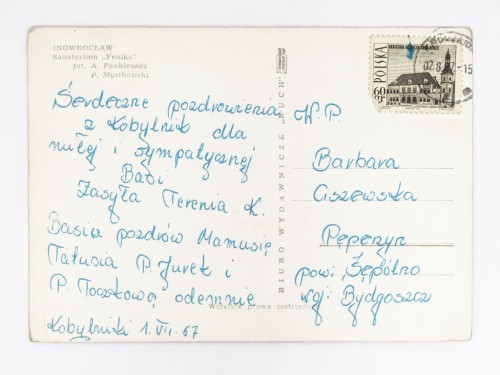 INOWROCŁAW
Sanatorium „Feniks"
fot. A. Funkiewicz
P. Mystkowski
Serdeczne pozdrowienia
z Kobylnik dla
miłej i sympatycznej
Basi
Zasyła Terenia K.
Basia pozdrów Mamusię
Tatusia P. Jurek i
P. Toczkową odemnie
Kobylniki 1.VII.67
BIURO WYDAWNICZE „RUCH"
POLSKA
60 GR
02.8.
-15
W.P.
Barbara
Ciszewska
Pęperzyn
pow. Sępólno
woj. Bydgoszcz